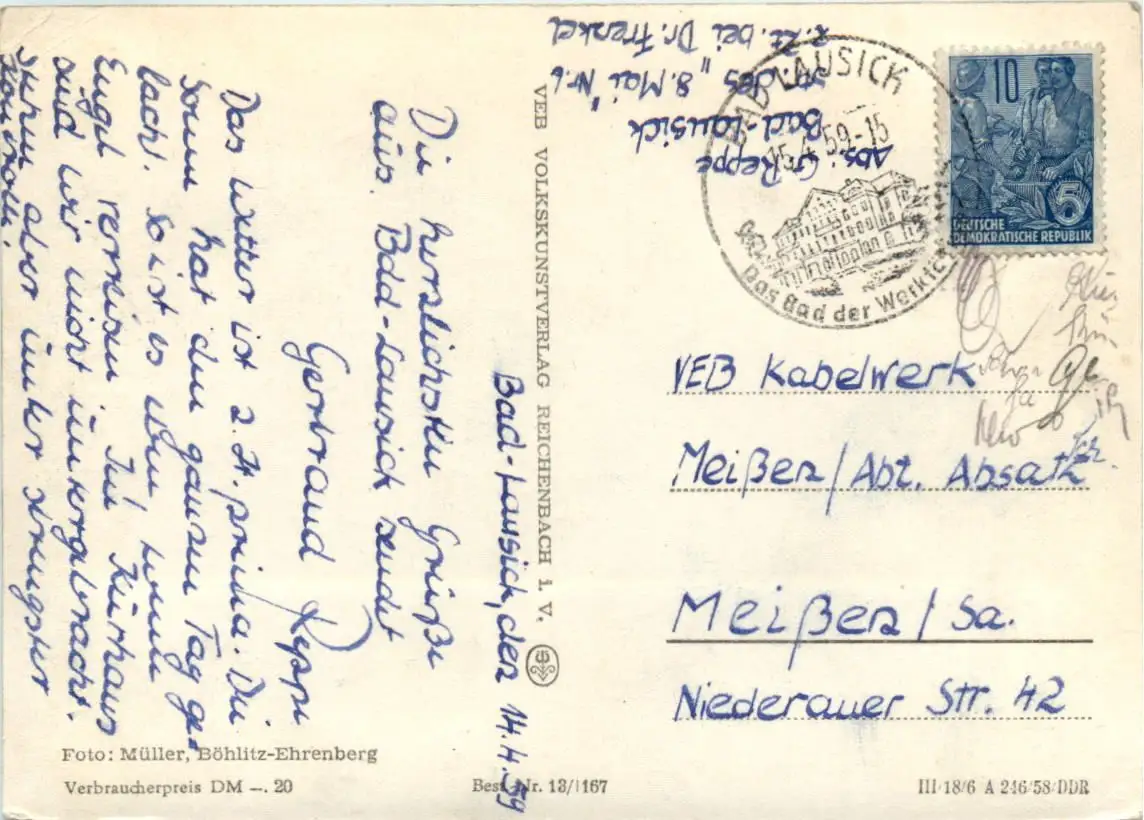 Abs: G. Reppe
Bad-Lausick
Str. des „8. Mai" Nr. 6
z. Zt. bei Dr. Frenkel
BAD LAUSICK
15.4.59-15
Das Bad der Werktätigen
10
5
DEUTSCHE
DEMOKRATISCHE REPUBLIK
Bad-Lausick, den 14.4.59
Die herzlichsten Grüße
aus Bad-Lausick sendet
Gertraud Reppe
Das Wetter ist z. Zt. prima. Die
Sonne hat den ganzen Tag ge-
lacht. So ist es wenn
Engel verreisen. Im Kurhaus
sind wir nicht untergebracht.
stehen aber unter strengster
Kontrolle.
VEB VOLKSKUNSTVERLAG REICHENBACH i. V.
VEB Kabelwerk
Meißen/Abt. Absatz
Meißen/Sa.
Niederauer Str. 42
Foto: Müller, Böhlitz-Ehrenberg
Verbraucherpreis DM –. 20
Best.-Nr. 13/1167
III/18/6 A 246/58/DDR